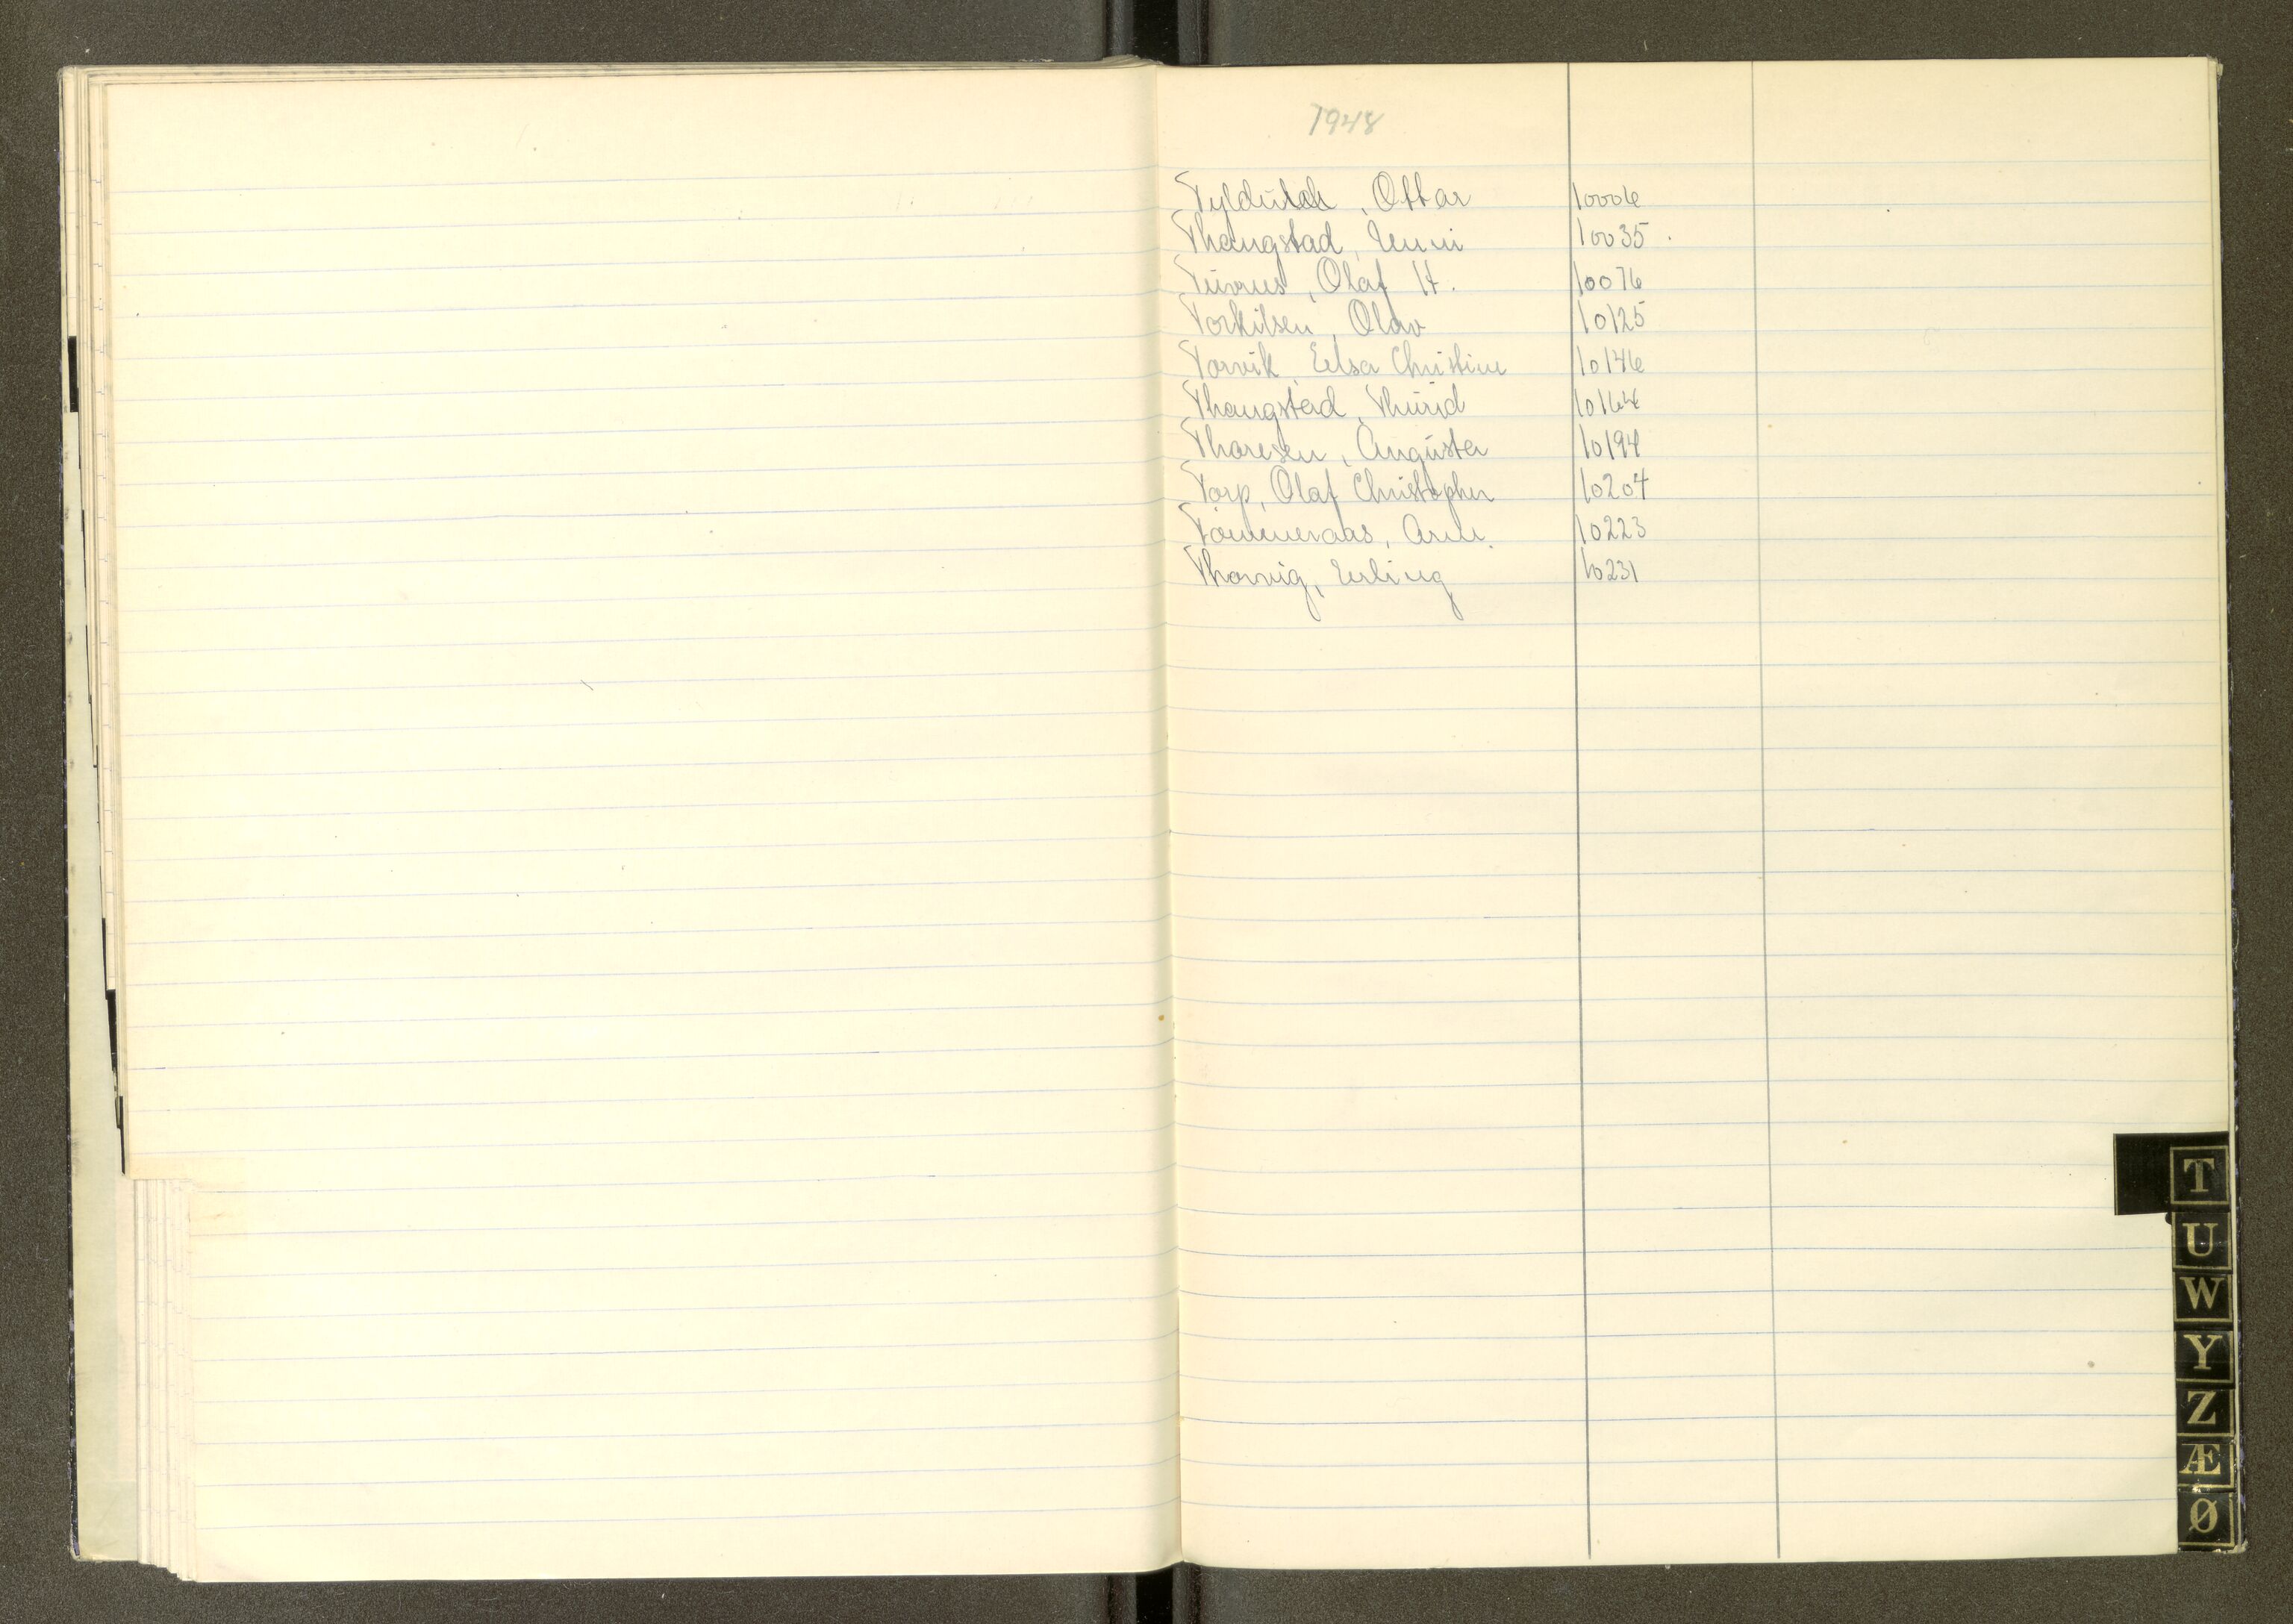 1948
Ottar 10006
Thangstad, Unni 10035.
Olaf H. 10076
Torkilsen, Olav 10125
Torvik, Elsa Christine 10146
Thangstad, Thurid
Thoresen, Augusta 10194
Torp, Olaf Christopher 10204
Tömmeraas, Arne. 10223
Thorvig, Erling 10231
T
U
W
Y
Z
Æ
Ø